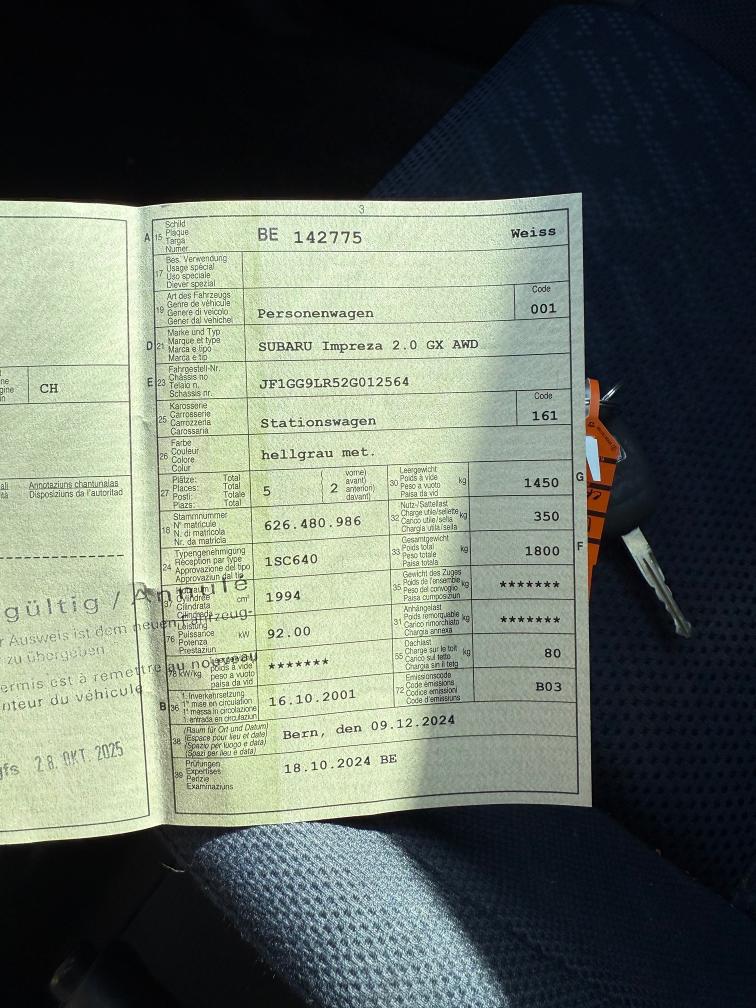 3
A 15 Schild
Plaque
Targa
Numer
BE 142775 Weiss
17 Bes. Verwendung
Usage spécial
Uso speciale
Diever spezial
19 Art des Fahrzeugs
Genre de véhicule
Genere di veicolo
Gener dal vehichel
Personenwagen
Code
001
D 21 Marke und Typ
Marque et type
Marca e tipo
Marca e tip
SUBARU Impreza 2.0 GX AWD
E 23 Fahrgestell-Nr.
Châssis no
Telaio n.
Schassis nr.
JF1GG9LR52G012564
25 Karosserie
Carrosserie
Carrozzeria
Carossaria
Stationswagen
Code
161
26 Farbe
Couleur
Colore
Colur
hellgrau met.
27 Plätze: Total
Places: Total
Posti: Totale
Plazs: Total
5
( 2 vorne)
avant)
anteriori)
davant)
30 Leergewicht
Poids à vide
Peso a vuoto
Paisa da vid
kg
1450
G
18 Stammnummer
N° matricule
N. di matricola
Nr. da matricla
626.480.986
32 Nutz-/Sattellast
Charge utile/sellette
Carico utile/sella
Chargia utila/sella
kg
350
24 Typengenehmigung
Réception par type
Approvazione del tipo
Approvaziun dal tip
1SC640
33 Gesamtgewicht
Poids total
Peso totale
Paisa totala
kg
1800
F
37 Hubraum
Cylindrée
Cilindrata
Cilindrada
cm³
1994
35 Gewicht des Zuges
Poids de l'ensemble
Peso del convoglio
Paisa cumposiziun
kg
*******
76 Leistung
Puissance
Potenza
Prestaziun
kW
92.00
31 Anhängelast
Poids remorquable
Carico rimorchiato
Chargia annexa
kg
*******
78 kW/kg
poids à vide
peso a vuoto
paisa da vid
*******
55 Dachlast
Charge sur le toit
Carico sul tetto
Chargia sin il tetg
kg
80
B 36 1. Inverkehrsetzung
1re mise en circulation
1a messa in circolazione
1. entrada en circulaziun
16.10.2001
72 Emissionscode
Code émissions
Codice emissioni
Code d'emissiuns
B03
38 (Raum für Ort und Datum)
(Espace pour lieu et date)
(Spazio per luogo e data)
(Spazi per lieu e data)
Bern, den 09.12.2024
39 Prüfungen
Expertises
Perizie
Examinaziuns
18.10.2024 BE
CH
Annotaziuns chantunalas
Disposiziuns da l'autoritad
gültig / Annulé
Ausweis ist dem neuen Fahrzeug-
zu übergeben
ermis est à remettre au nouveau
nteur du véhicule
28. OKT. 2025